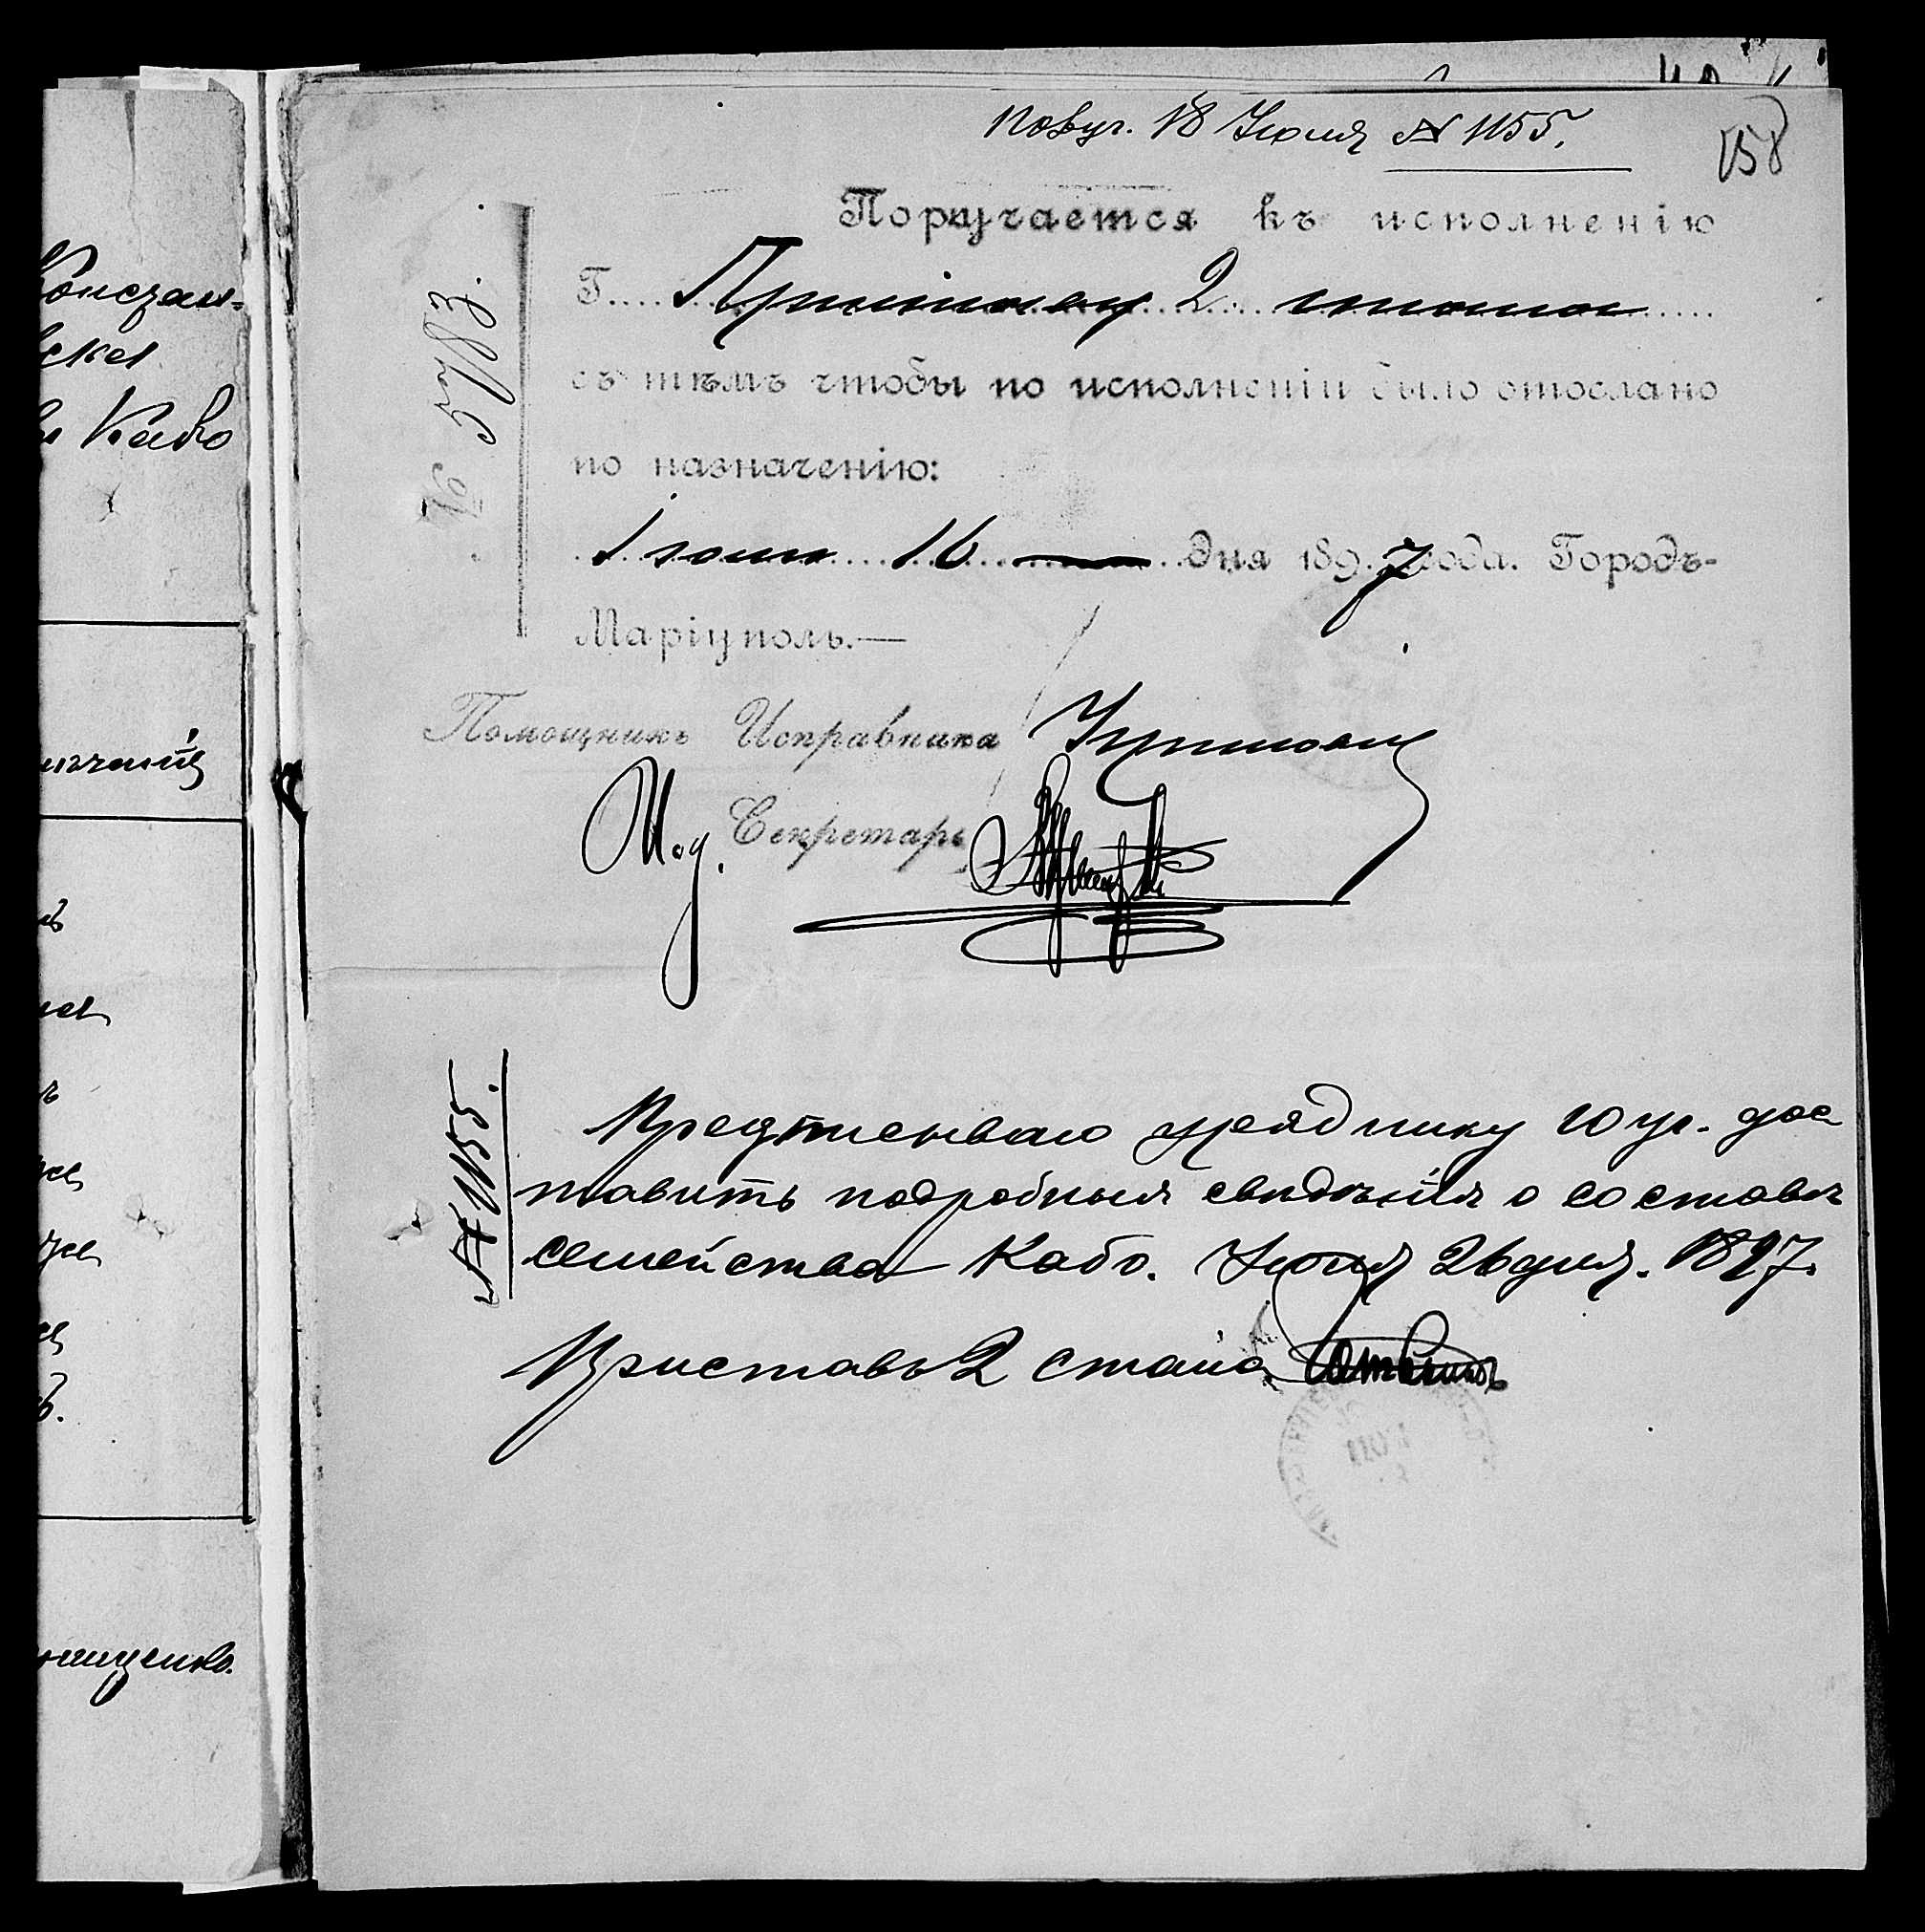 Получ. 18 Июня № 1155.
158
Поручается къ исполненію
Г. Приставу 2 стана
съ тѣмъ чтобы по исполненіи было отослано
по назначенію:
Іюня 16 дня 1897 года. Городъ-
Маріуполь.—
Помощникъ Исправника
И. д. Секретарь
№ 1155.
Предписываю уряднику 10 уч. дос
тавить подробныя свидѣнія о составѣ
семейства Кабо. Июня 26 дня. 1897.
Приставъ 2 стана
Констан-
ска
Кабо